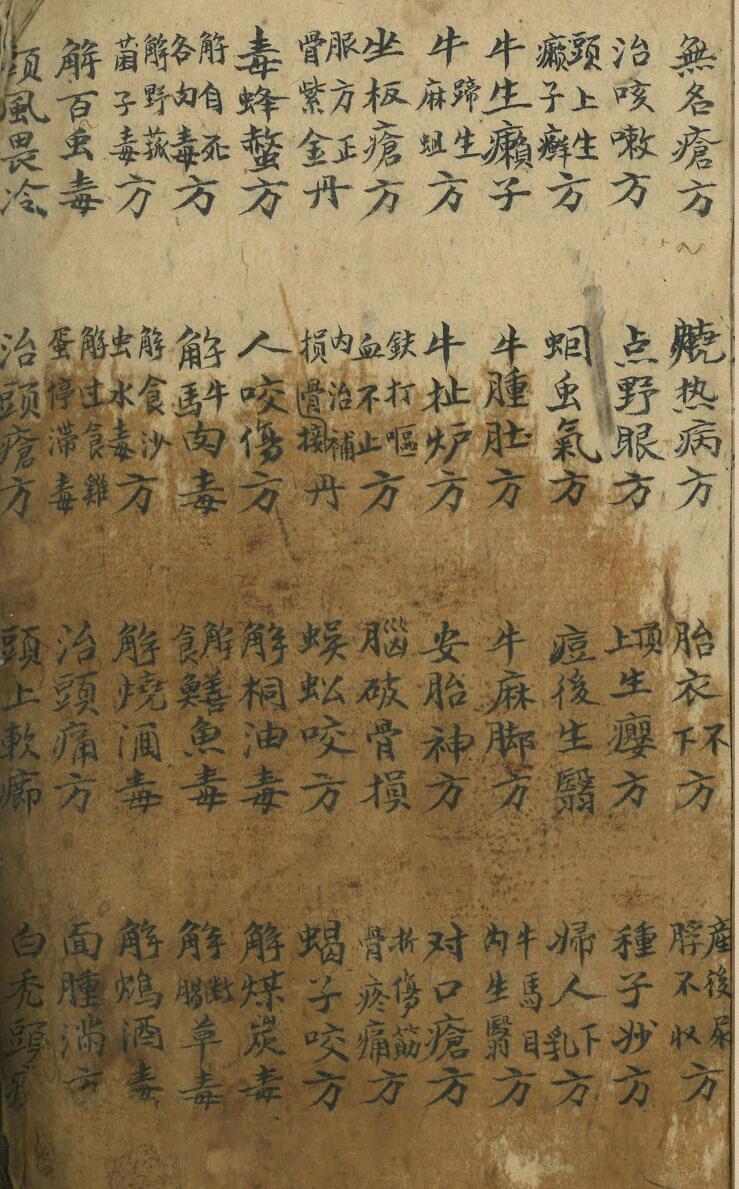 無名瘡方 燒热病方 胎衣不下方 產後尿脬不收方
治咳嗽方 点野眼方 頂上生癭方 種子妙方
頭上生癞子癬方 蛔虫氣方 痘後生翳 婦人下乳方
牛生癩子 牛腫肚方 牛麻脚方 牛馬目内生翳方
牛蹄生麻蛆方 牛扯炉方 安胎神方 对口瘡方
坐板瘡方 鈇打嘔血不止方 腦破骨損 折傷筋骨疼痛方
服方正骨紫金丹 内治補损骨接丹 蜈蚣咬方 蝎子咬方
毒蜂螫方 人咬傷方 解桐油毒 解煤炭毒
解自死各肉毒方 解牛馬肉毒 解食鱔魚毒 解断腸草毒
解野菰菌子毒方 解食沙虫水毒方 解燒酒毒 解鴆酒毒
解百虫毒 解过食雞蛋停滞毒 治頭痛方 面腫满方
頭風畏冷 治頭瘡方 頭上軟癤 白秃頭